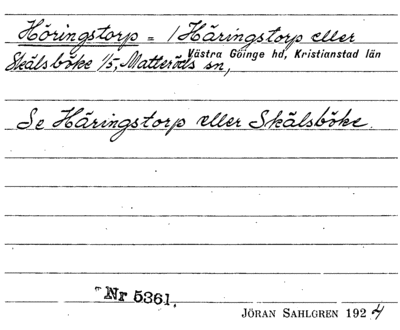 Höringstorp = / Häringstorp eller
Skälsböke 1/5, Matteröds sn, Västra Göinge hd, Kristianstad län
Se Häringstorp eller Skälsböke.
Nr 5361.
JÖRAN SAHLGREN 1924